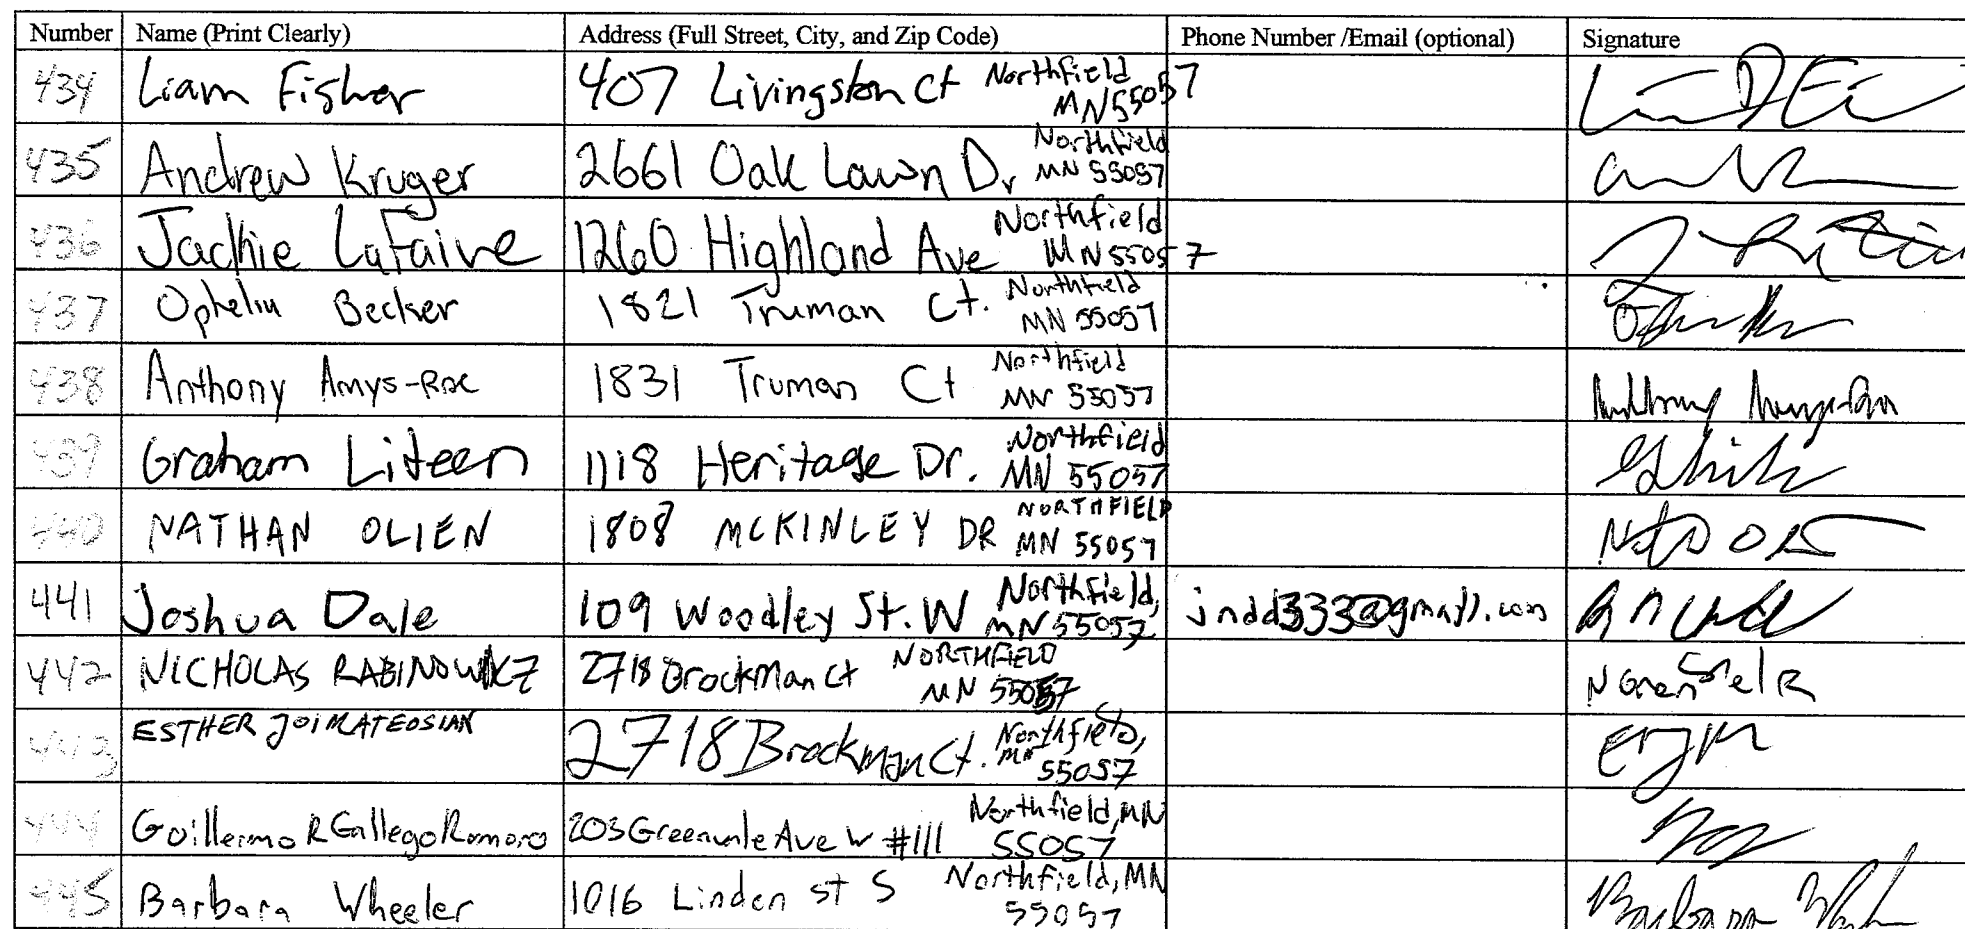 Number Name (Print Clearly) Address (Full Street, City, and Zip Code) Phone Number /Email (optional) Signature
434 Liam Fisher 407 Livingston Ct Northfield
MN 55057
435 Andrew Kruger 2661 Oak Lawn Dr Northfield
MN 55057
436 Jackie LaFaive 1260 Highland Ave Northfield
MN 55057
437 Ophelia Becker 1821 Truman Ct. Northfield
MN 55057
438 Anthony Amys-Roe 1831 Truman Ct Northfield
MN 55057
439 Graham Liteen 1118 Heritage Dr. Northfield
MN 55057
440 NATHAN OLIEN 1808 MCKINLEY DR NORTHFIELD
MN 55057
441 Joshua Dale 109 Woodley St. W Northfield,
MN 55057 jndd333@gmail.com
442 NICHOLAS RABINOWICZ 2718 Brockman Ct NORTHFIELD
MN 55057
443 ESTHER JOI MATEOSIAN 2718 Brockman Ct. Northfield,
MN 55057
444 Guillermo R Gallego Romero 203 Greenvale Ave W #111 Northfield, MN
55057
445 Barbara Wheeler 1016 Linden St S Northfield, MN
55057 Barbara